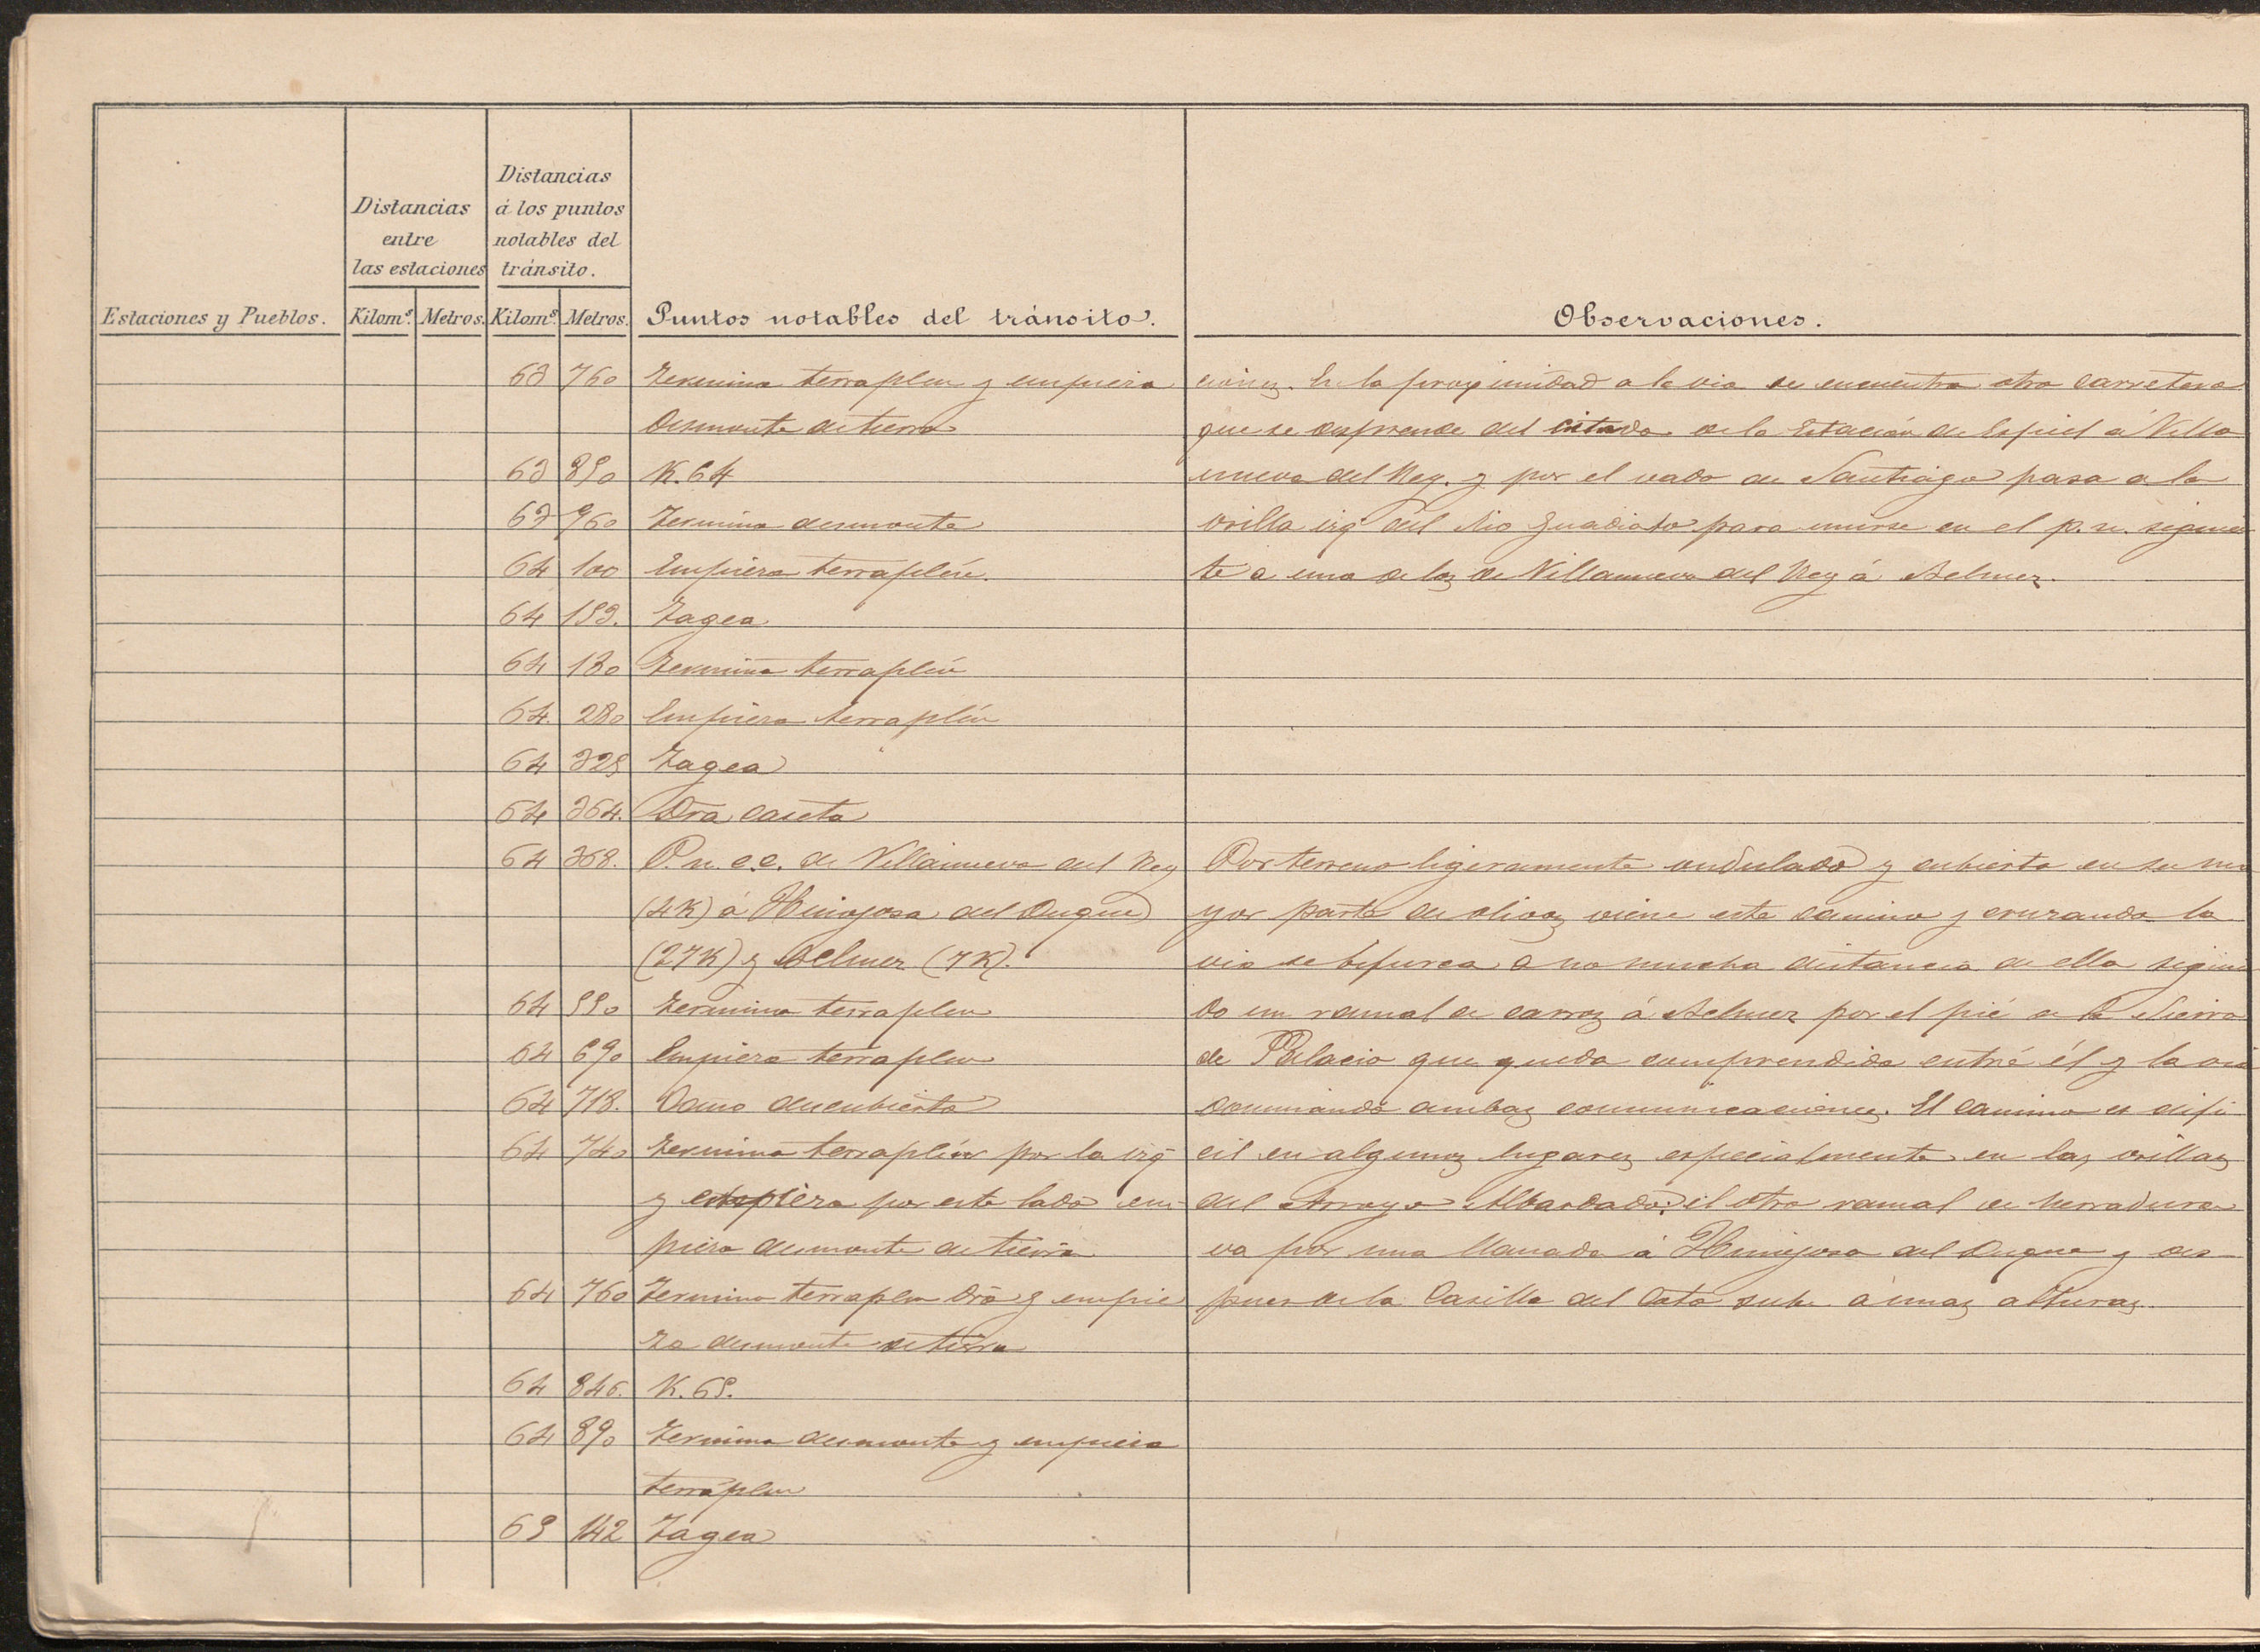 Estaciones y Pueblos.
Distancias
entre
las estaciones
Kilomˢ. Metros.
Distancias
á los puntos
notables del
tránsito.
Kilomˢ. Metros.
Puntos notables del tránsito.
Observaciones.
63 760 Termina terraplen y empieza
desmonte de tierra
63 850 K. 64
63 960 Termina desmonte
64 100 Empieza terraplén.
64 153. Tagea
64 180 Termina terraplén
64. 280 Empieza terraplén
64 325 Tagea
64 364. Dra caseta
64 368. P. n. c.c. de Villanueva del Rey
(4K) á Hinojosa del Duque
(27K) y Belmez (7K).
64 550 Termina terraplen
64 690 Empieza terraplen
64 718. Vano descubierto
64 740 Termina terraplén por la izq
y empieza por este lado em-
pieza desmonte de tierra
64 760 Termina terraplen Dra y empie
za desmonte de tierra
64 846. K. 65.
64 890 Termina desmonte y empieza
terraplen
65 142 Tagea
ciones. En la proximidad a la via se encuentra otra carretera
que se desprende del citado de la Estación de Espiel á Villa
nueva del Rey. y por el vado de Santiago pasa a la
orilla izq del Rio Guadiato para unirse en el p. n. siguien
te a uno de los de Villanueva del Rey á Belmez.
Por terreno ligeramente ondulado y cubierto en su ma
yor parte de olivos viene este camino y cruzando la
via se bifurca a no mucha distancia de ella siguien
do un ramal de carros á Belmez por el pié de la Sierra
de Palacio que queda comprendida entre él y la via
dominando ambas comunicaciones. El camino es difi
cil en algunos lugares especialmente en las orillas
del Arroyo Albardado: el otro ramal de herradura
va por una llanada á Hinojosa del Duque y des
pues de la Casilla del Coto sube á unas alturas.